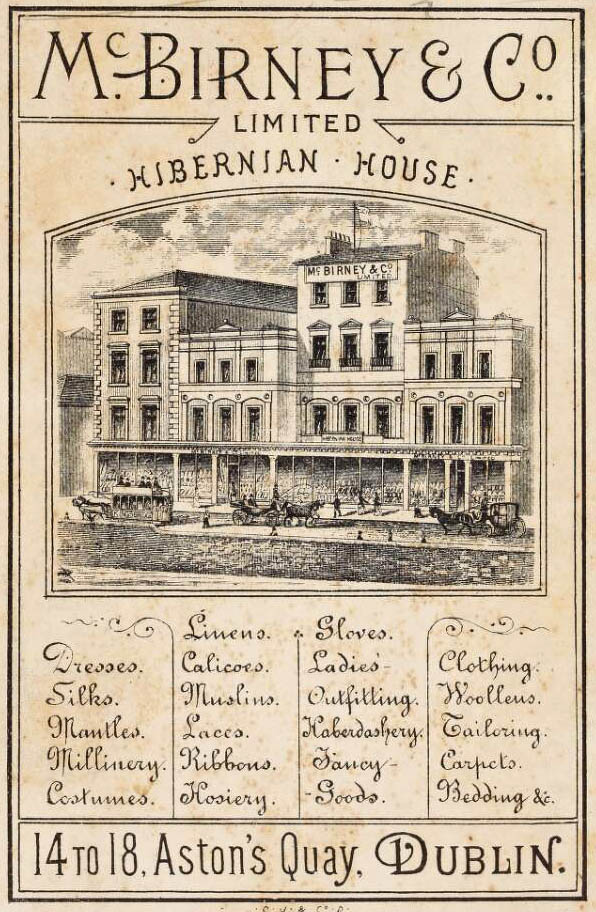 McBIRNEY & Co..
LIMITED
· HIBERNIAN · HOUSE ·
Mc BIRNEY & Co
LIMITED
HIBERNIAN HOUSE
Dresses.
Silks.
Mantles.
Millinery.
Costumes.
Linens.
Calicoes.
Muslins.
Laces.
Ribbons.
Hosiery.
Gloves.
Ladies'-
Outfitting.
Haberdashery.
Fancy-
-Goods.
Clothing.
Woollens.
Tailoring.
Carpets.
Bedding &c.
14 TO 18, Aston's Quay, DUBLIN.